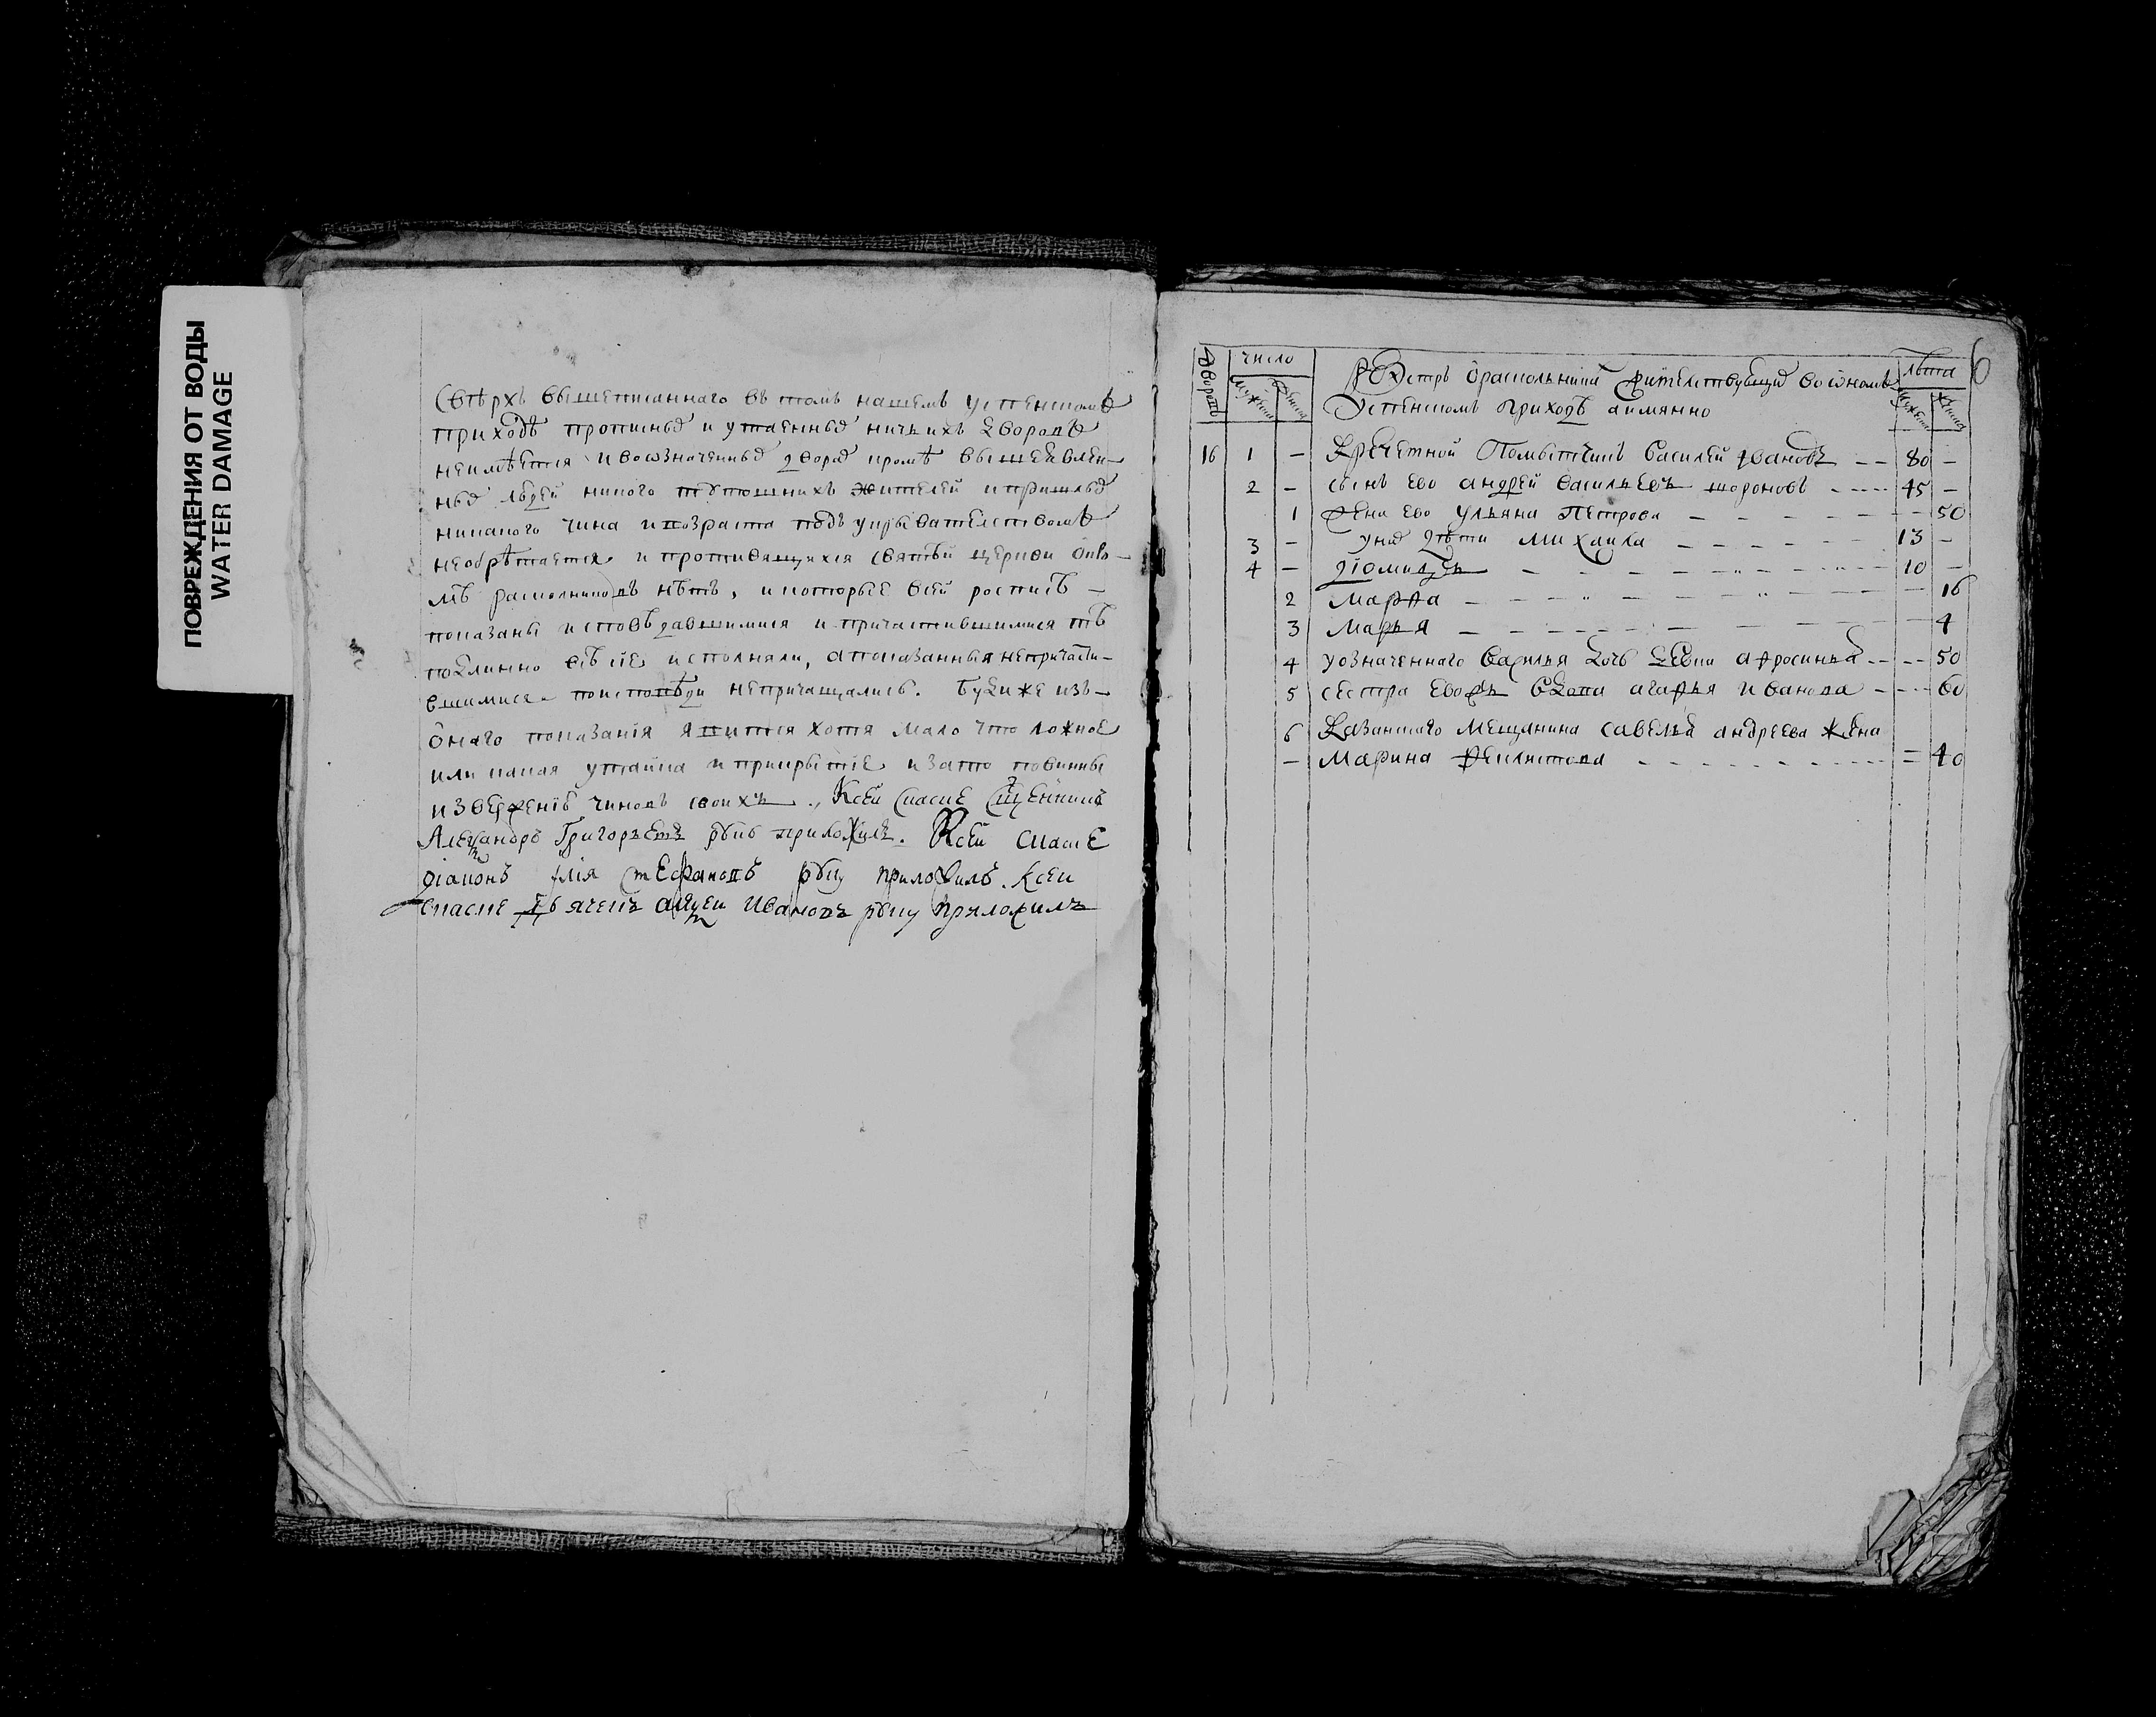 ПОВРЕЖДЕНИЯ ОТ ВОДЫ
WATER DAMAGE
Сверхъ вышеписаннаго въ томъ нашемъ успенскомъ
приходѣ прописныхъ и утаенныхъ ничьихъ дворовъ
неимѣется и воозначенныхъ дворахъ кромѣ вышеявлен-
ныхъ людей никого тутошнихъ жителей ипришлыхъ
никакого чина ивозраста подъ укрывателствомъ
необрѣтается и противящихся святѣй церкви
расколниковъ нѣтъ, икоторые всей росписѣ
показаны исповѣдавшимися ипричастившимися тѣ
подлинно всѣ сіе исполняли, апоказанныя непричасти-
вшимися поисповѣди непричащались. Буди же изъ-
онаго показанія явится хотя мало что ложное
или какая утайка иприкрытіе изато повинны
извержению чиновъ своихъ. Ксей скаске Священникъ
Александръ Григорьевъ руку приложилъ. Ксей скаске
діаконъ Илія Стефановъ руку приложилъ. Ксей
скаске дьячекъ алексей Ивановъ руку приложилъ
6
Дворовъ
число
мужеска
женска
Реэстръ ораскольникахъ жителствующихъ во ономъ
Успенскомъ приходѣ аимянно
лѣта
мужеска
женска
16 1 – Кречетной Помытчикъ Василей Ивановъ – – 80 –
2 – сынъ ево андрей васильевъ – – 45 –
1 жена ево ульяна петрова – – – 50
3 – унихъ дѣти михаила – – – 13 –
4 – діомидъ – – – 10 –
2 марфа – – – 16
3 марья – – – 4
4 уозначеннаго василья дочь девка афросинья – – 50
5 сестра ево вдова агафья иванова – – 60
6 Казанскаго мещанина савелья андреева жена
– марина – – – 40